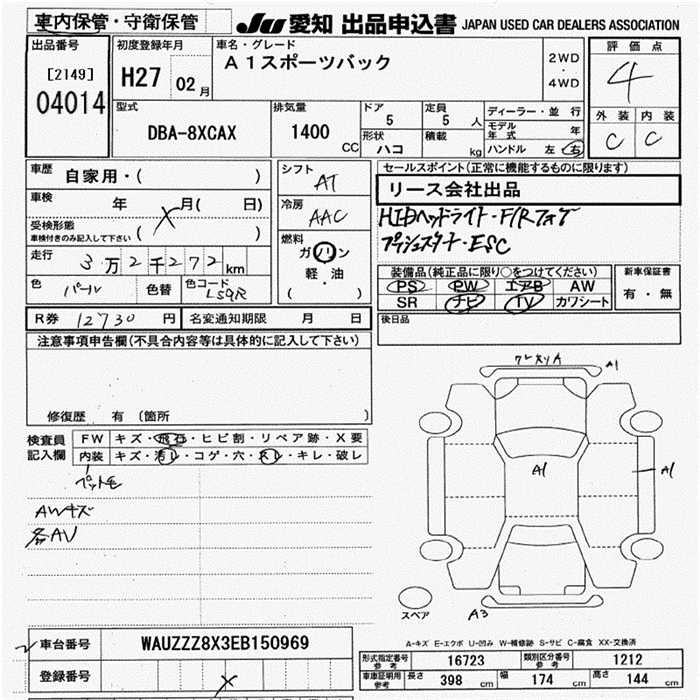 車内保管・守衛保管
JU 愛知 出品申込書 JAPAN USED CAR DEALERS ASSOCIATION
出品番号
[2149]
04014
初度登録年月
H27 02月
車名・グレード
A1スポーツバック
2WD
・
4WD
評価点
4
外装 内装
C C
型式
DBA-8XCAX
排気量
1400
CC
ドア
5
定員
5人
形状
ハコ
積載
kg
ディーラー・並行
モデル年式 年
ハンドル 左 右
車歴
自家用・( )
車検
年 X 月( 日)
受検形態
車検付きのみ記入して下さい ( )
走行
3万2千272km
色
パール
色替
色コード
LS9R
シフト
AT
冷房
AAC
燃料
ガソリン
軽・油
( )
セールスポイント(正常に機能するものに限ります)
リース会社出品
HIDヘッドライト・F/Rフォグ
プッシュスタート・ESC
装備品(純正品に限り○をつけてください)
PS PW エアB AW
SR ナビ TV カワシート
新車保証書
有・無
後日品
R券 12730円
名変通知期限 月 日
注意事項申告欄(不具合内容等は具体的に記入して下さい)
修復歴 有 (箇所 )
検査員記入欄
FW キズ・飛石・ヒビ割・リペア跡・X要
内装 キズ・汚レ・コゲ・穴・スレ・キレ・破レ
ペット毛
AWキズ
各AU
A1
A1
A1
スペア
A3
A-キズ E-エクボ U-凹み W-補修跡 S-サビ C-腐食 XX-交換済
車台番号
WAUZZZ8X3EB150969
登録番号
X
形式指定番号
参考
16723
類別区分番号
参考
1212
車庫証明用
参考
長さ 398 cm
幅 174 cm
高さ 144 cm